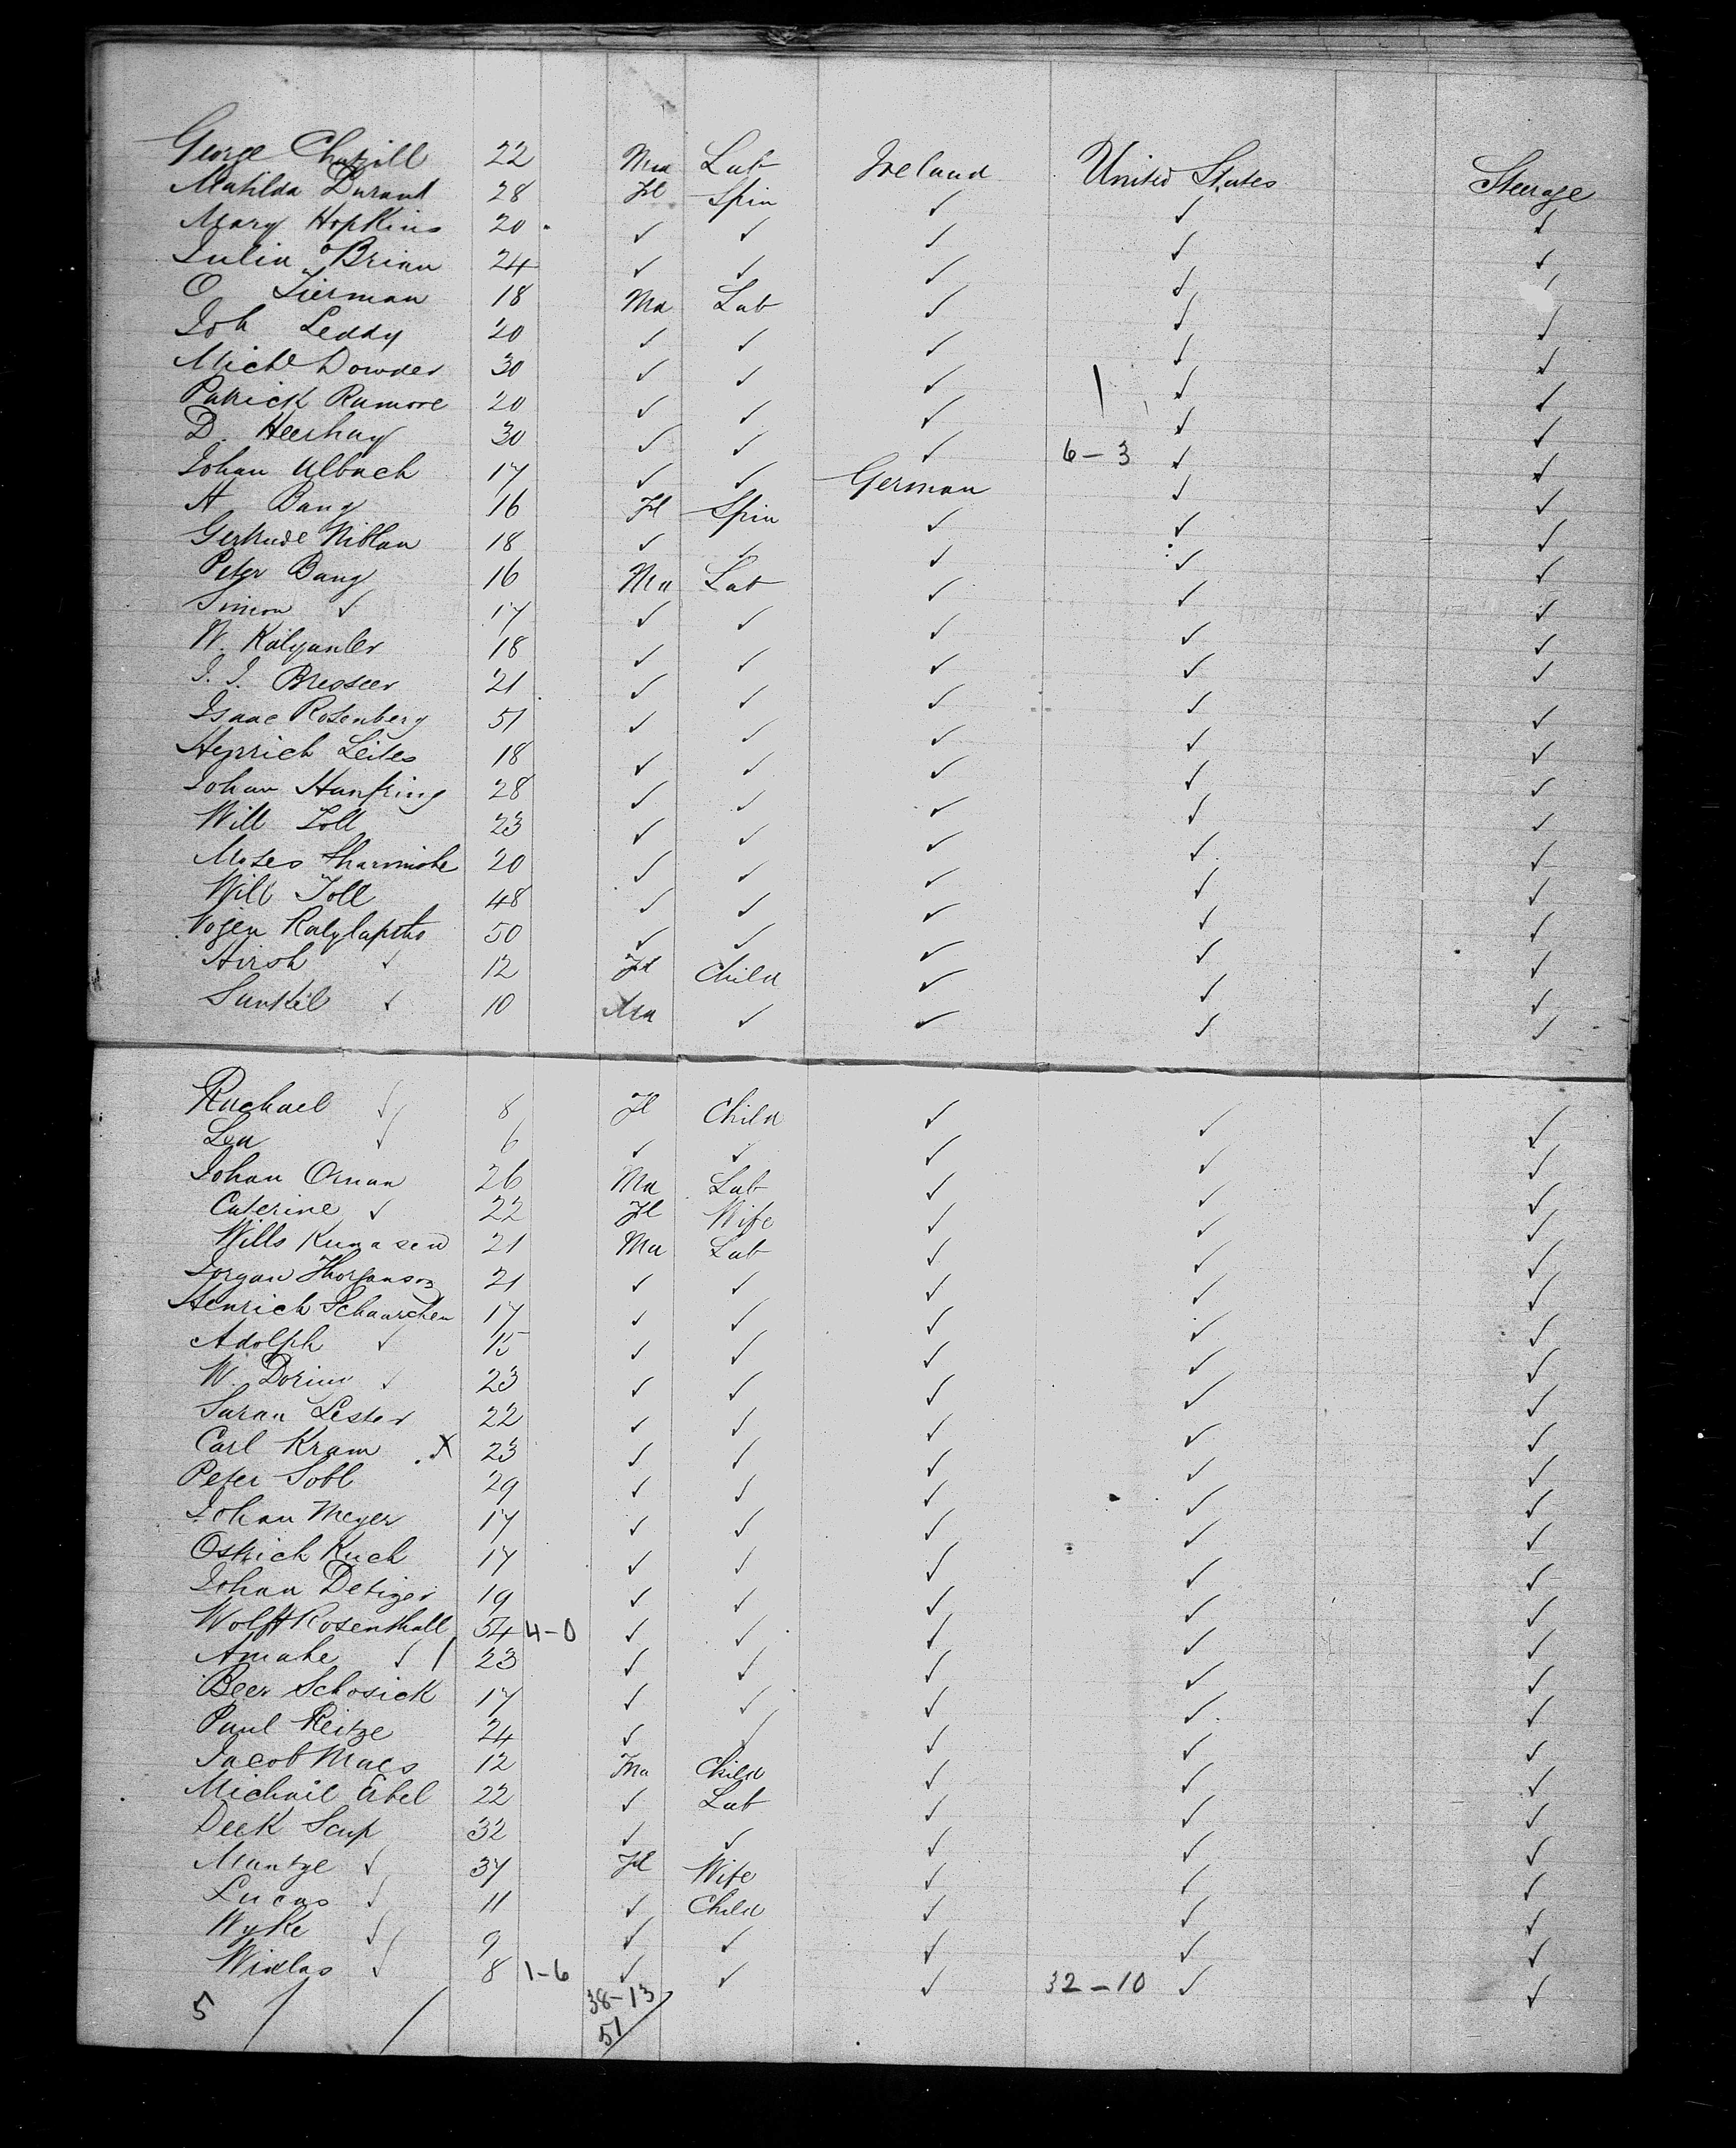 George Chapill 22 Ma Lab Ireland United States Steerage
Matilda Durant 28 Fl Spin ✓ ✓ ✓
Mary Hopkins 20 ✓ ✓ ✓ ✓ ✓
Julia O'Brian 24 ✓ ✓ ✓ ✓ ✓
O Tierman 18 Ma Lab ✓ ✓
Joh Leddy 20 ✓ ✓ ✓ ✓ ✓
Michl Dowder 30 ✓ ✓ ✓ ✓ ✓
Patrick Ramore 20 ✓ ✓ ✓ ✓ ✓
D. Heerhay 30 ✓ ✓ ✓ 6-3 ✓ ✓
Johan Ulbach 17 ✓ ✓ German ✓ ✓
A Bang 16 Fl Spin ✓ ✓ ✓
Gertrude Niblan 18 ✓ ✓ ✓ ✓ ✓
Peter Bang 16 Ma Lab ✓ ✓ ✓
Simon ✓ 17 ✓ ✓ ✓ ✓ ✓
W. 18 ✓ ✓ ✓ ✓ ✓
J. J. 21 ✓ ✓ ✓ ✓ ✓
Isaac Rosenberg 51 ✓ ✓ ✓ ✓ ✓
Henrich Leites 18 ✓ ✓ ✓ ✓ ✓
Johan Hanfring 28 ✓ ✓ ✓ ✓ ✓
Will Toll 23 ✓ ✓ ✓ ✓ ✓
Moses 20 ✓ ✓ ✓ ✓ ✓
Will Toll 48 ✓ ✓ ✓ ✓ ✓
50 ✓ ✓ ✓ ✓ ✓
Hirsh ✓ 12 Fl Child ✓ ✓ ✓
Sankil ✓ 10 Ma ✓ ✓ ✓ ✓
Rachael ✓ 8 Fl Child ✓ ✓ ✓
Lea ✓ 6 ✓ ✓ ✓ ✓ ✓
Johan Oman 26 Ma Lab ✓ ✓ ✓
Caterine ✓ 22 Fl Wife ✓ ✓ ✓
Wills 21 Ma Lab ✓ ✓ ✓
Jorgan Thorganson 21 ✓ ✓ ✓ ✓ ✓
Henrich Schaarchen 17 ✓ ✓ ✓ ✓ ✓
Adolph ✓ 15 ✓ ✓ ✓ ✓ ✓
W. Dorim ✓ 23 ✓ ✓ ✓ ✓ ✓
Saran Lester 22 ✓ ✓ ✓ ✓ ✓
Carl Kram X 23 ✓ ✓ ✓ ✓ ✓
Peter Sobl 29 ✓ ✓ ✓ ✓ ✓
Johan Meyer 17 ✓ ✓ ✓ ✓ ✓
Ostrich Kuch 17 ✓ ✓ ✓ ✓ ✓
Johan Detiger 19 ✓ ✓ ✓ ✓ ✓
Wolff Rosenthall 54 4-0 ✓ ✓ ✓ ✓ ✓
Amahe ✓ / 23 ✓ ✓ ✓ ✓ ✓
Beer Schosick 17 ✓ ✓ ✓ ✓ ✓
Paul Reitze 24 ✓ ✓ ✓ ✓ ✓
Jacob Maes 12 Ma Child ✓ ✓ ✓
Michail Erbel 22 ✓ Lab ✓ ✓ ✓
Deek Scup 32 ✓ ✓ ✓ ✓ ✓
Mantze ✓ 37 Fl Wife ✓ ✓ ✓
Lucas ✓ 11 ✓ Child ✓ ✓ ✓
Wyke ✓ 9 ✓ ✓ ✓ ✓ ✓
Wixlas ✓ 8 1-6 ✓ ✓ ✓ 32-10 ✓ ✓
5 / / 38-13
51